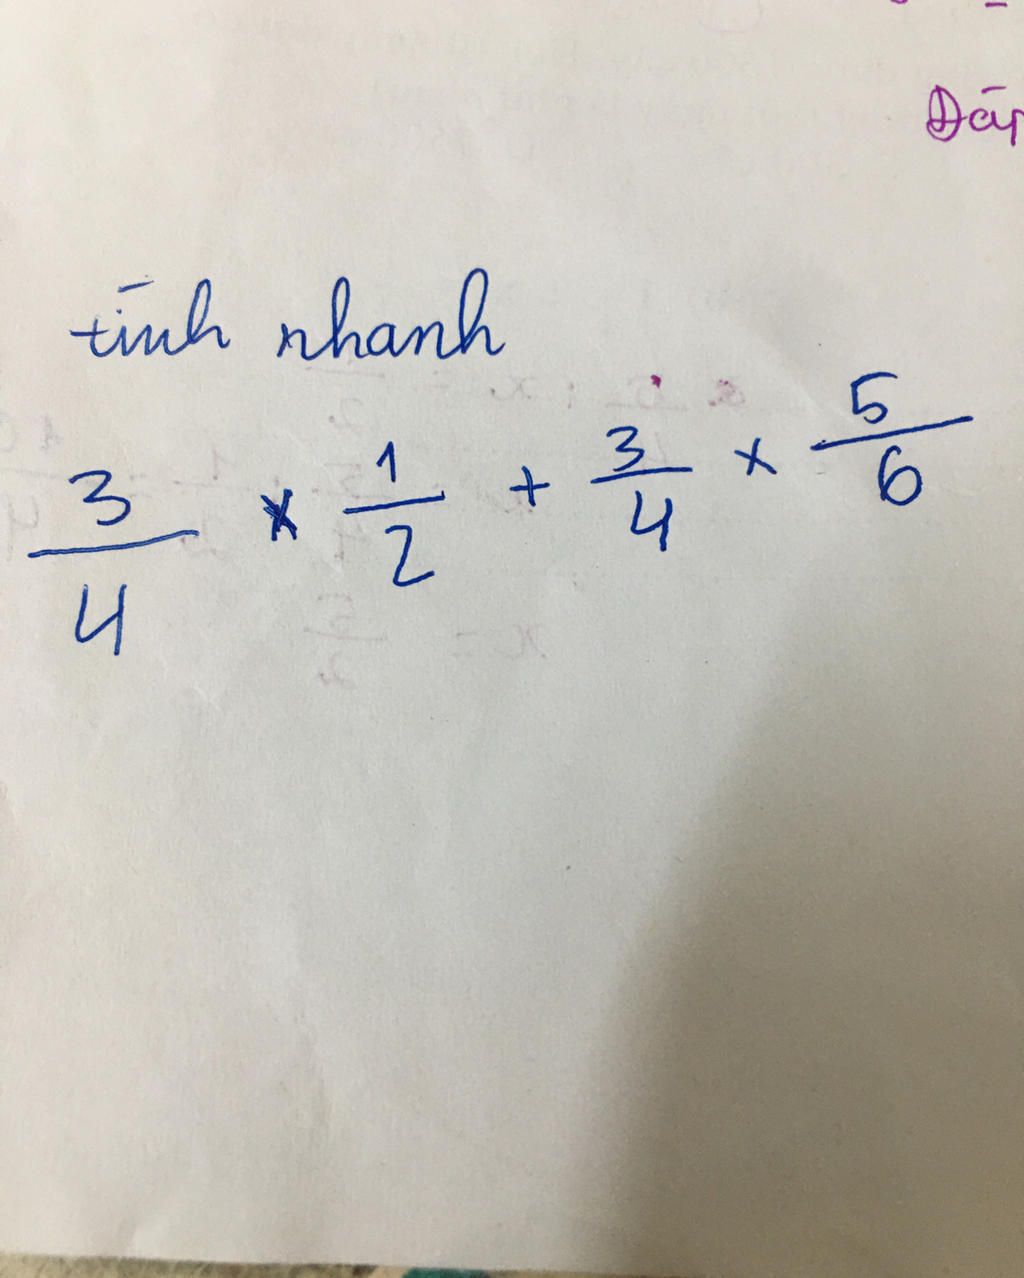 tính nhanh
3/4 × 1/2 + 3/4 × 5/6